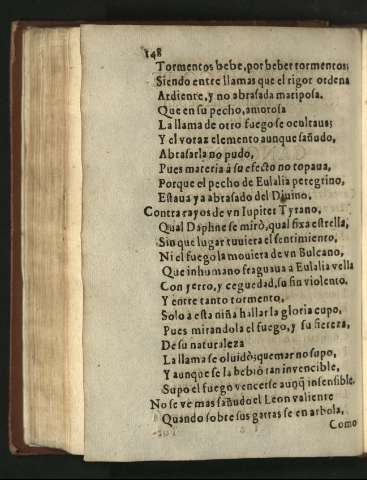 148
Tormentos bebe, por beber tormentos;
Siendo entre llamas que el rigor ordena
Ardiente, y no abrasada mariposa.
Que en su pecho, amorosa
La llama de otro fuego se ocultaua;
Y el voraz elemento aunque sañudo,
Abrasarla no pudo,
Pues materia à su efecto no topaua,
Porque el pecho de Eulalia peregrino,
Estaua ya abrasado del Diuino.
Contra rayos de vn Iupiter Tyrano,
Qual Daphne se mirò, qual fixa estrella,
Sin que lugar tuuiera el sentimiento,
Ni el fuego la mouiera de vn Bulcano,
Que inhumano fraguaua a Eulalia vella
Con yerro, y ceguedad, su fin violento.
Y entre tanto tormento,
Solo à esta niña hallar la gloria cupo,
Pues mirandola el fuego, y su fiereza,
De su naturaleza
La llama se oluidò; quemar no supo,
Y aunque se la bebiò tan invencible,
Supo el fuego vencerse aunq̃ insensible.
No se ve mas sañudo el Leon valiente
Quando sobre sus garras se en arbola,
Como